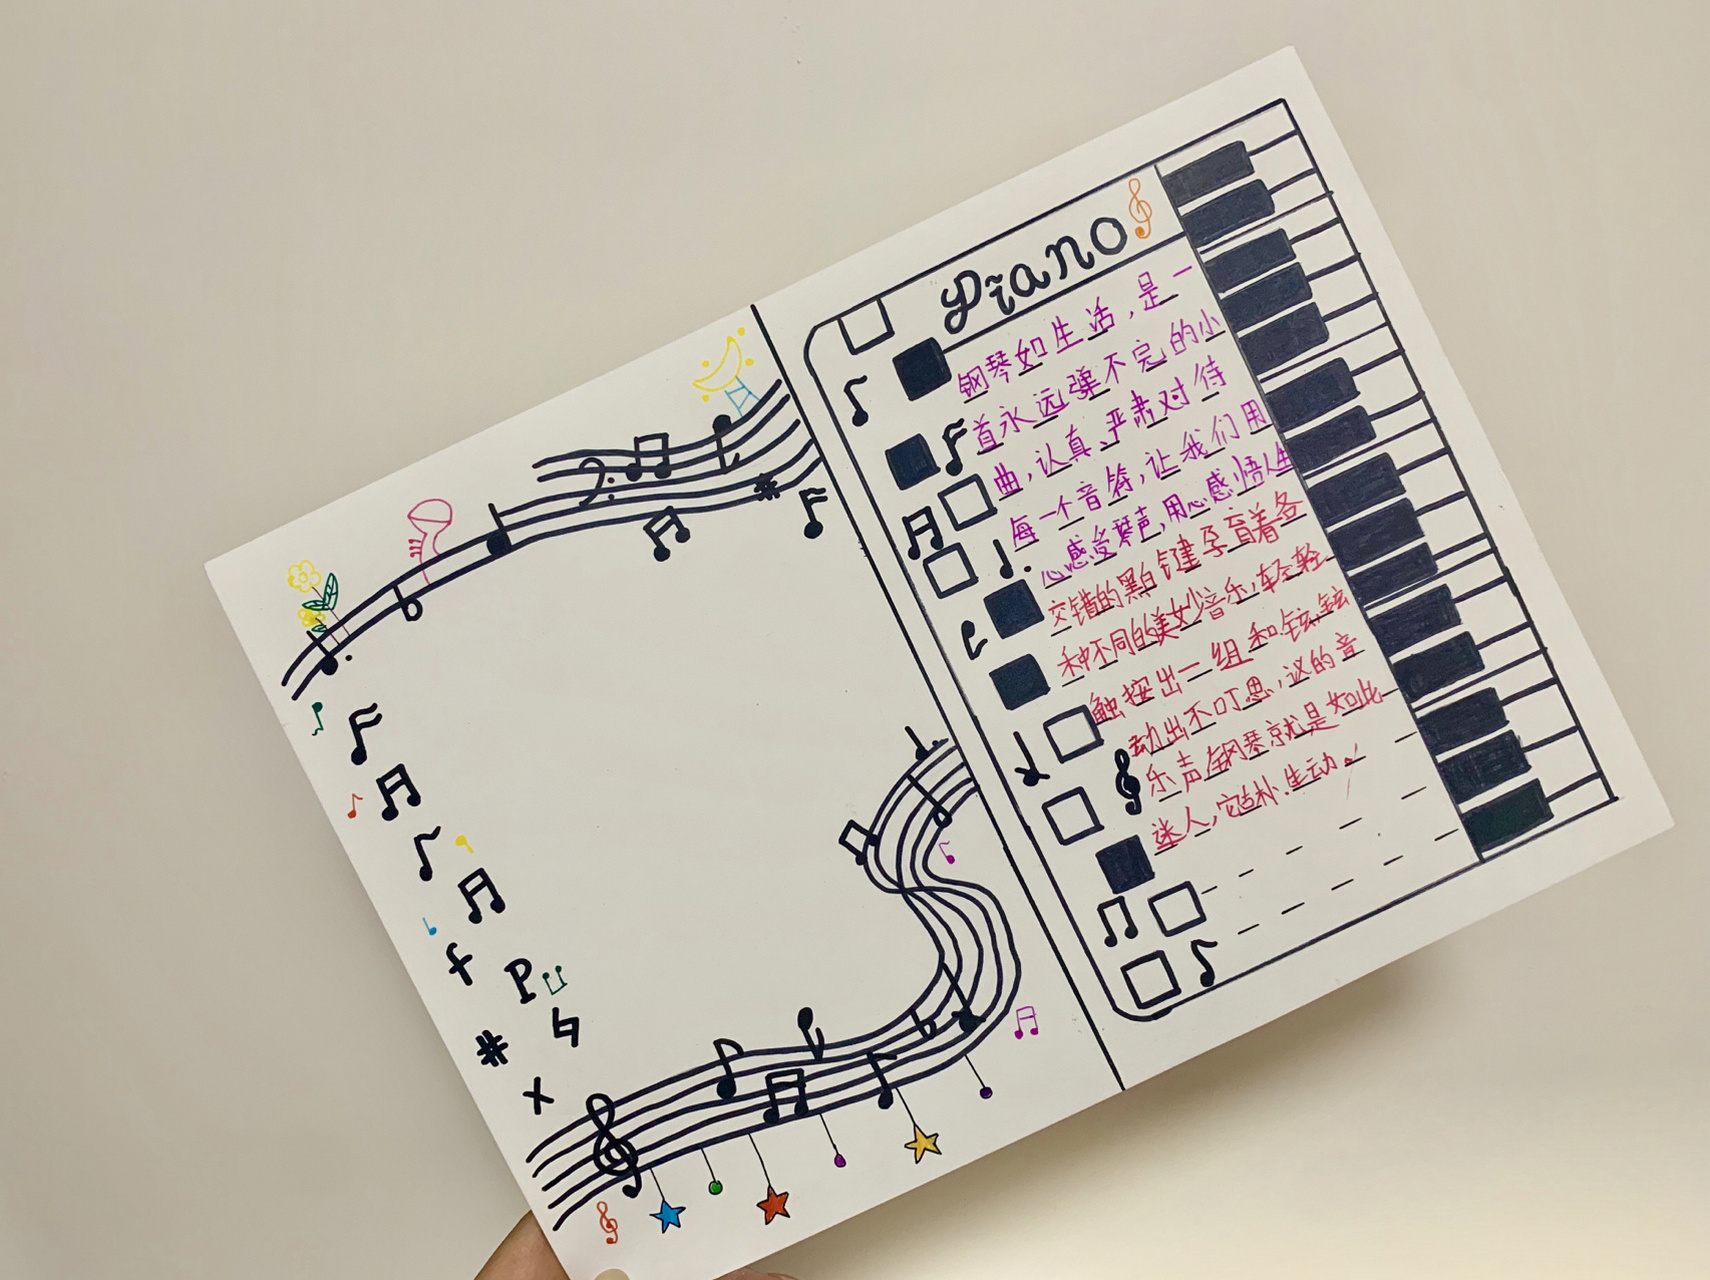 Piano
钢琴如生活，是一
首永远弹不完的小
曲，认真、严肃对待
每一个音符，让我们用
心感受琴声，用心感悟人生
交错的黑白键孕育着各
种不同的美妙音乐，轻轻
触按出一组和铉，铉
动出不可思，议的音
乐声钢琴就是如此
迷人，它古朴.生动.！
f
P
x